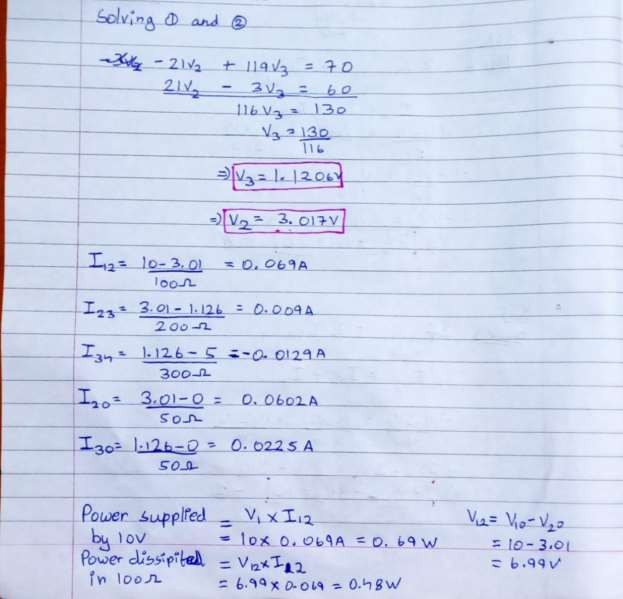 Solving ① and ②
- 21V₂ + 119V₃ = 70
21V₂ - 3V₃ = 60
116V₃ = 130
V₃ = 130/116
⇒ V₃ = 1.1206V
⇒ V₂ = 3.017V
I₁₂ = 10-3.01/100Ω = 0.069A
I₂₃ = 3.01-1.126/200Ω = 0.009A
I₃₄ = 1.126-5/300Ω = -0.0129A
I₂₀ = 3.01-0/50Ω = 0.0602A
I₃₀ = 1.126-0/50Ω = 0.0225A
Power supplied by 10V = V₁ x I₁₂
= 10x 0.069A = 0.69W
Power dissipited in 100Ω = V₁₂xI₁₂
= 6.99x0.069 = 0.48W
V₁₂ = V₁₀-V₂₀
= 10-3.01
= 6.99V